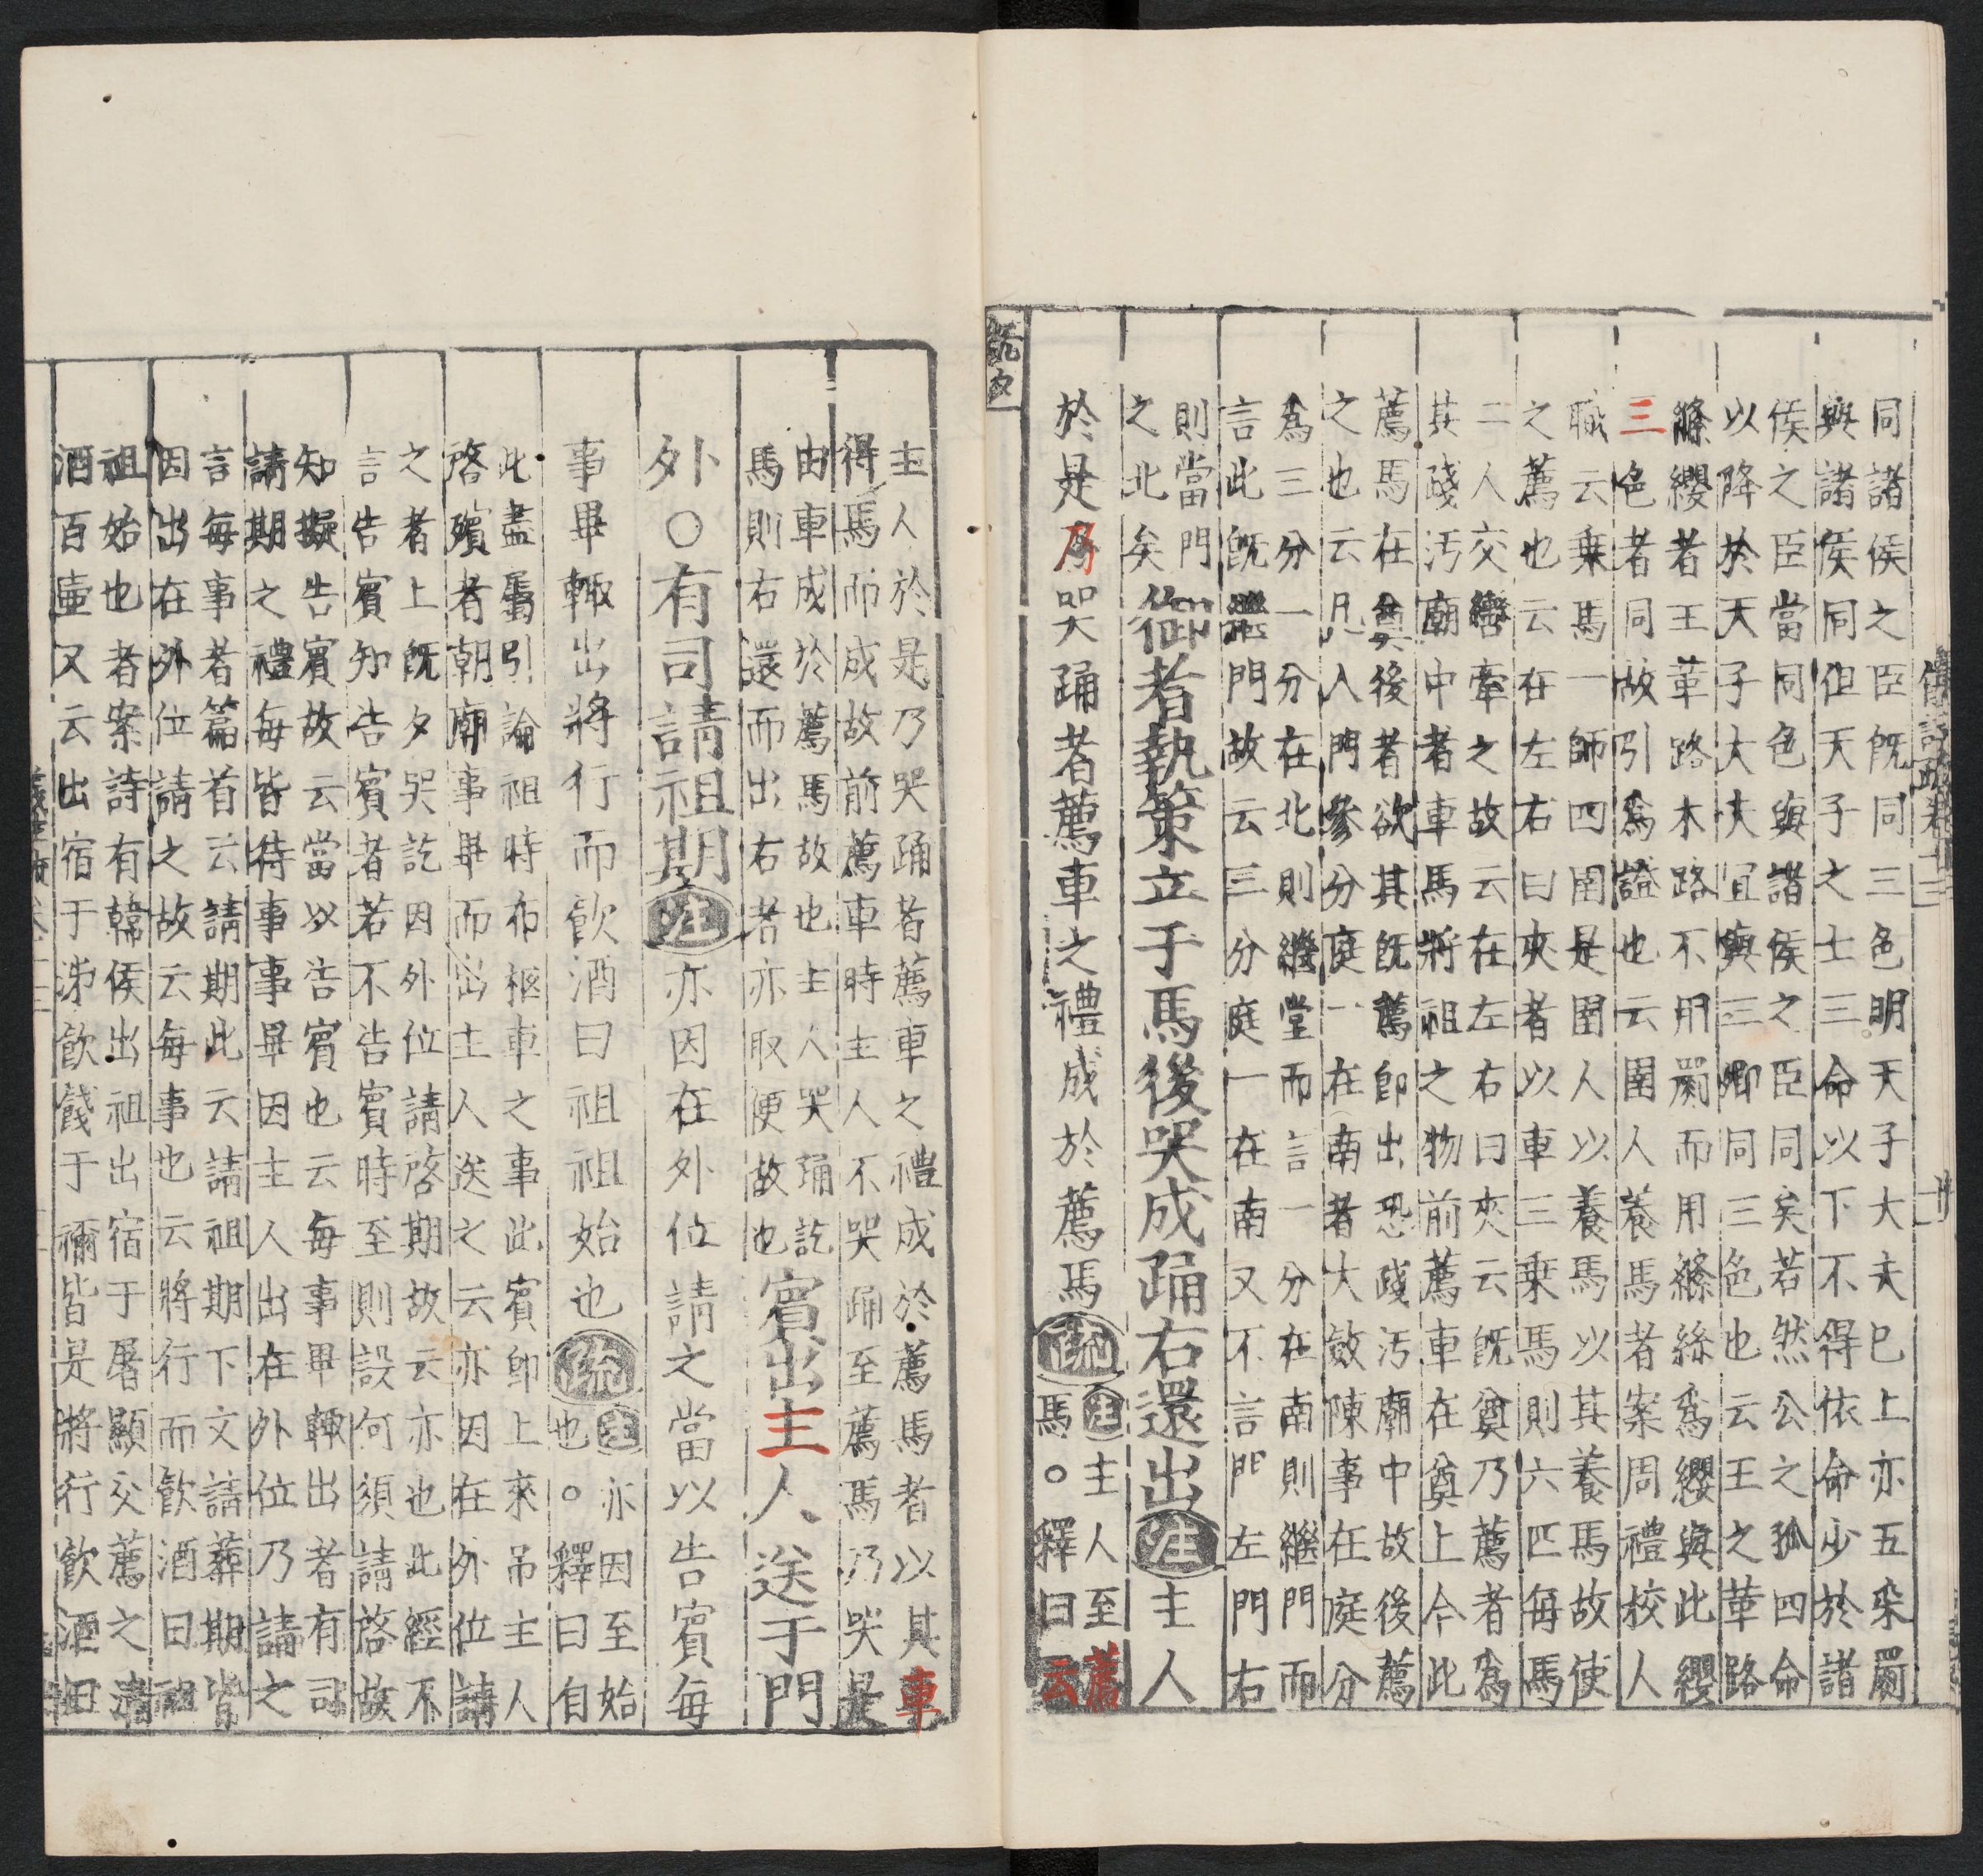 同諸侯之臣既同三色明天子大夫已上亦五采罽
與諸侯同但天子之士三命以下不得依命少於諸
侯之臣當同色與諸侯之臣同矣若然公之孤四命
以降於天子大夫宜與三卿同三色也云王之革路
絛纓者王革路木路不用罽而用絛絲爲纓與此纓
三色者同故引爲證也云圉人養馬者案周禮校人
職云乗馬一師四圉是圉人以養馬以其養馬故使
之薦也云在左右曰夾者以車三乗馬則六匹每馬
二人交轡牽之故云在左右曰夾云既奠乃薦者爲
其踐汚廟中者車馬將祖之物前薦車在奠上今此
薦馬在奠後者欲其既薦卽出恐踐汚廟中故後薦
之也云凡入門參分庭一在南者大斂陳事在庭分
爲三分一分在北則繼堂而言一分在南則繼門而
言此既繼門故云三分庭一在南又不言門左門右
則當門
之北矣
御者執策立于馬後哭成踊右還出
注
主人
於是乃哭踊者薦車之禮成於薦馬
疏
注主人至薦
馬○釋曰云
既夕
主人於是乃哭踊者薦車之禮成於薦馬者以其車
得馬而成故前薦車時主人不哭踊至薦馬乃哭是
由車成於薦馬故也主人哭踊訖
馬則右還而出右者亦取便故也
賓出主人送于門
外○有司請祖期
注
亦因在外位請之當以告賓每
事畢輒出將行而飮酒曰祖祖始也
疏
注亦因至始
也○釋曰自
此盡屬引論祖時布柩車之事此賓卽上來吊主人
啓殯者朝廟事畢而出主人送之云亦因在外位請
之者上既夕哭訖因外位請啓期故云亦也此經不
言告賓知告賓者若不告賓時至則設何須請啓故
知擬告賓故云當以告賓也云每事畢輒出者有司
請期之禮每皆待事事畢因主人出在外位乃請之
言每事者篇首云請期此云請祖期下文請葬期皆
因出在外位請之故云每事也云將行而飮酒曰祖
祖始也者案詩有韓侯出祖出宿于屠顯父薦之清
酒百壷又云出宿于泲飮餞于禰皆是將行飮酒曰